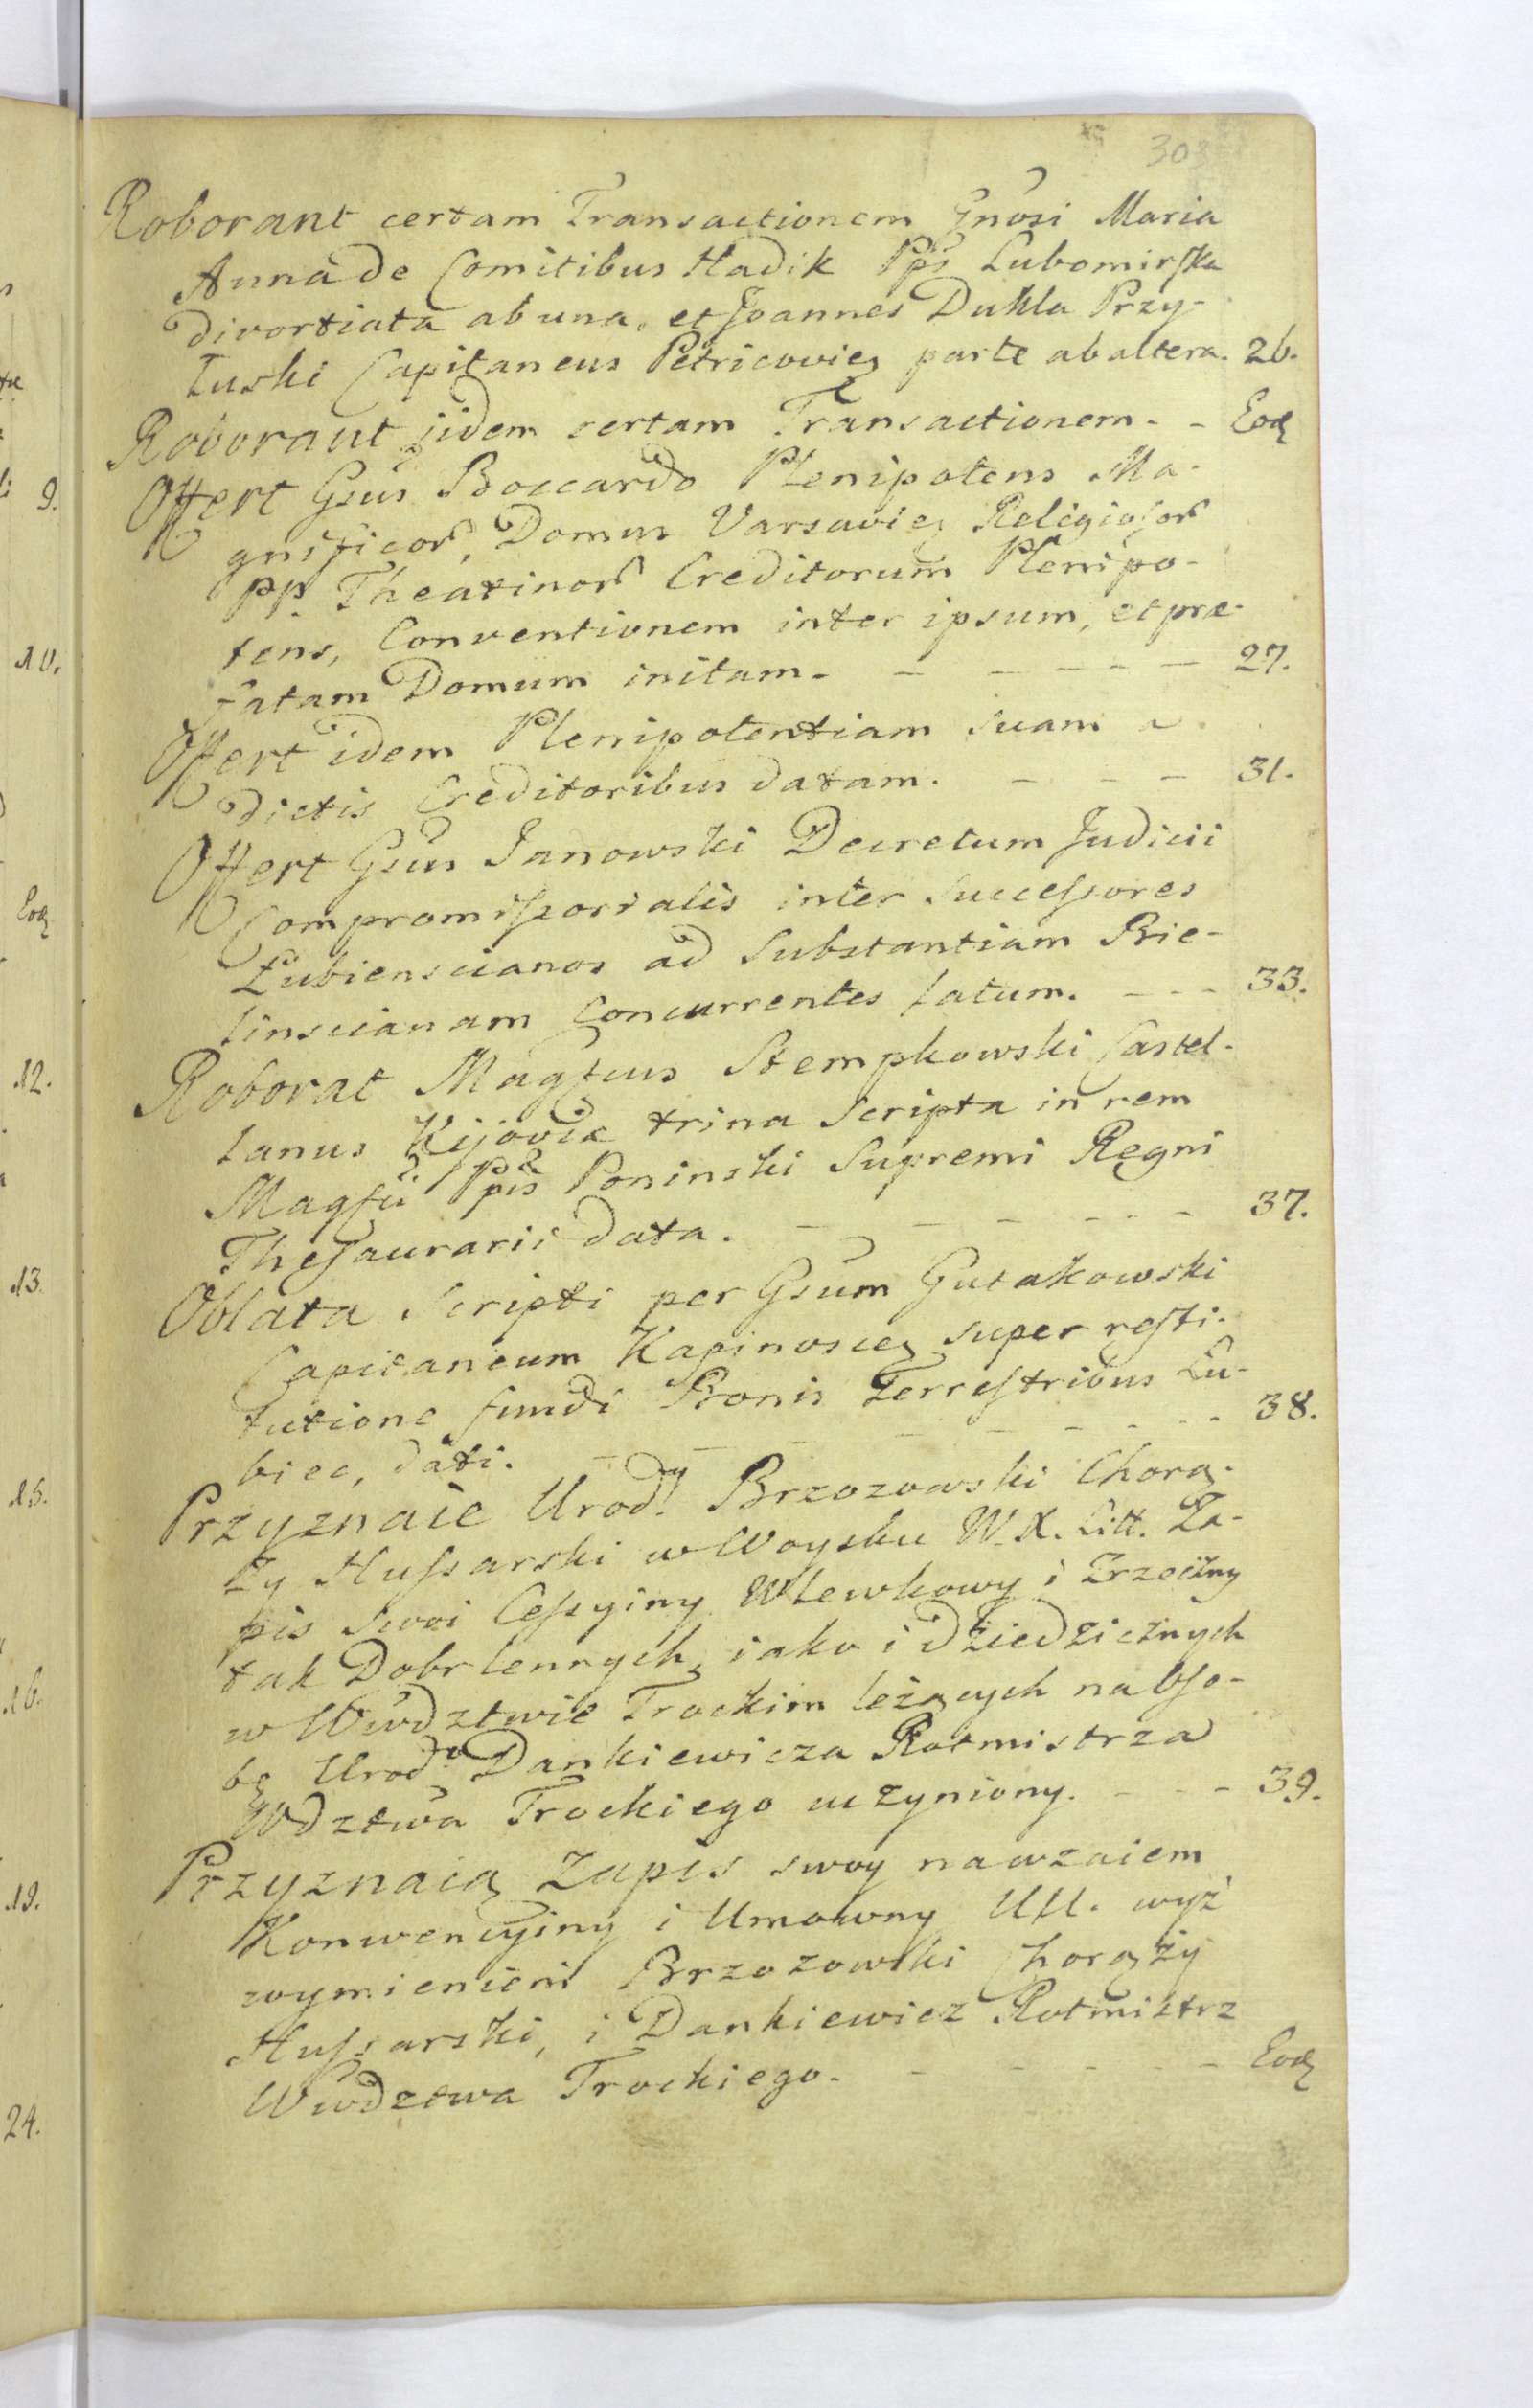 303
Roborant certam Transactionem Gnosi Maria
Anna de Comitibus Hadik Pps Lubomirska
divortiata ab una, et Joannes Dukla Przy-
łuski Capitaneus Petricovien parte ab altera. 26.
Roborant iidem certam Transactionem. - Eod
Offert Gsus Boccardo Plenipotens Ma-
gnificor, Domus Varsavien Religiosor
PP. Theatinor Creditorum Plenipo-
tens, Conventionem inter ipsum, et præ-
fatam Domum initam. - - - - - 27.
Offert idem Plenipotentiam suam a
dictis Creditoribus datam. - - - 31.
Offert Gsus Janowski Decretum Judicii
Compromissorialis inter Successores
Łubienscianos ad Substantiam Bie-
linscianam Concurrentes latum. - - - 33.
Roborat Magfcus Stempkowski Castel-
lanus Kijoviæ trina Scripta in rem
Magfci Ppis Poninski Supremi Regni
Thesaurarii data. - - - - - - 37.
Oblata Scripti per Gsum Gutakowski
Capitaneum Kapinoscen super resti-
tutione fundi Bonis Terrestribus Lu-
biec, dati. - - - - - - - 38.
Przyznaie Urody Brzozowski Chorą-
ży Hussarski w Woysku W. X. Litt. Za-
pis swoi Cessyiny Wlewkowy i Zrzeczny
tak Dobr lennych, iako i dziedzicznych
w Wwdztwie Trockim leżących na Oso-
bę Urodo Dankiewicza Rotmistrza
Wdztwa Trockiego uczyniony. - - - 39.
Przyznaią Zapis swoy nawzaiem
Konwencyiny i Umowny UU. wyż
wymienieni Brzozowski Chorąży
Hussarski, i Dankiewicz Rotmistrz
Wwdztwa Trockiego. - - - - - Eod
9.
10.
Eod
12.
13.
15.
16.
19.
24.